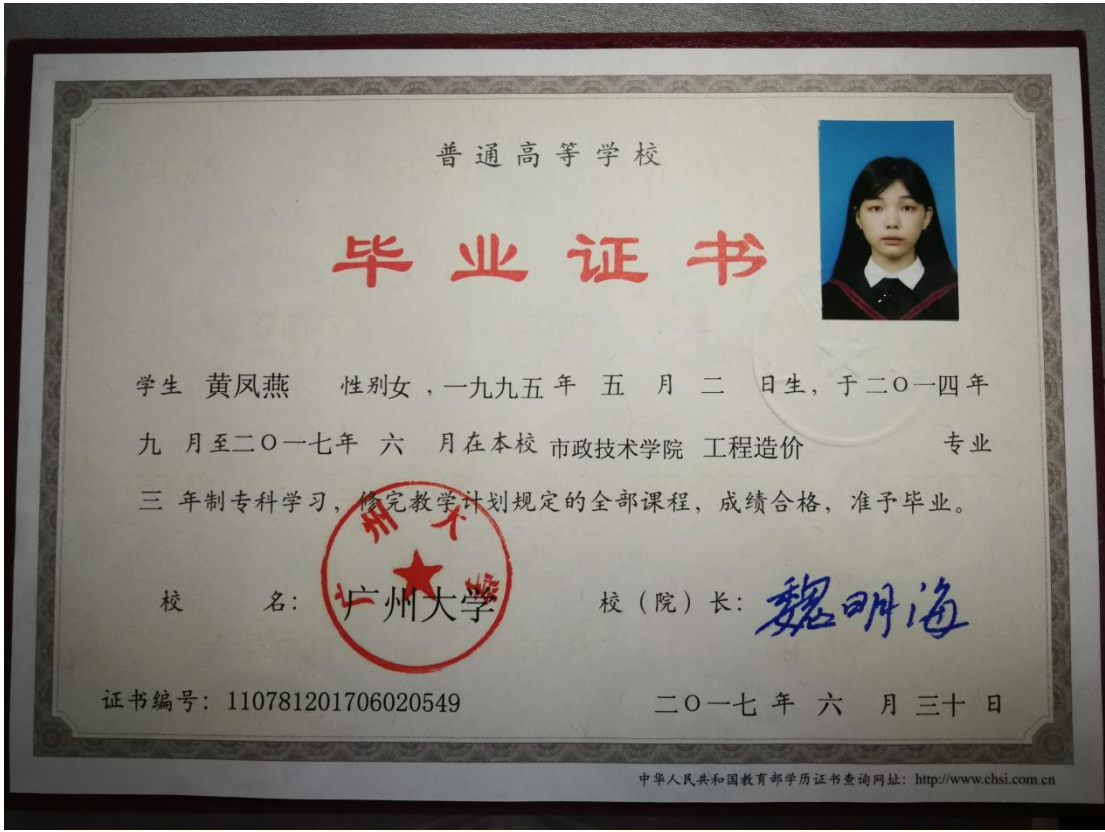 普通高等学校
毕业证书
学生 黄凤燕 性别女，一九九五年 五 月 二 日生，于二〇一四年
九 月至二〇一七年 六 月在本校 市政技术学院 工程造价 专业
三 年制专科学习，修完教学计划规定的全部课程，成绩合格，准予毕业。
广州大学
校 名：广州大学 校（院）长：魏明海
证书编号：110781201706020549 二〇一七年 六 月 三十 日
中华人民共和国教育部学历证书查询网址：http://www.chsi.com.cn